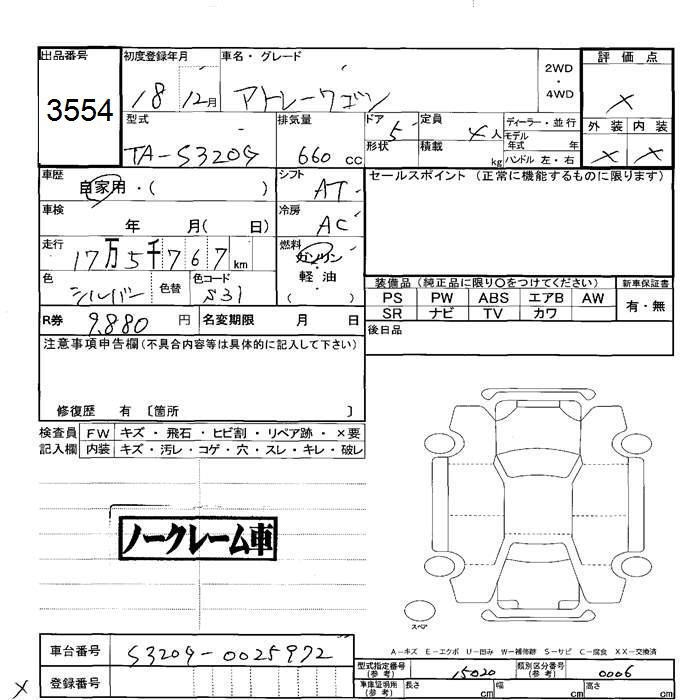 出品番号 初度登録年月 車名・グレード 2WD 評価点
3554 18 12月 アトレーワゴン ・ ×
4WD
型式 排気量 ドア 5 定員 4人 ディーラー・並行 外装 内装
モデル
TA-S320G 660cc 形状 積載 kg 年式 年 × ×
ハンドル 左・右
車歴 自家用・( ) シフト AT セールスポイント (正常に機能するものに限ります)
車検 年 月( 日) 冷房 AC
走行 17万5千767km 燃料 ガソリン
・
軽油
( )
色 シルバー 色替 色コード S31 装備品(純正品に限り〇をつけてください) 新車保証書
PS PW ABS エアB AW 有・無
SR ナビ TV カワ
R券 9,880円 名変期限 月 日 後日品
注意事項申告欄(不具合内容等は具体的に記入して下さい)
修復歴 有 〔箇所 〕
検査員 FW キズ・飛石・ヒビ割・リペア跡・×要
記入欄 内装 キズ・汚レ・コゲ・穴・スレ・キレ・破レ
ノークレーム車
スペア
A-キズ E-エクボ U-凹み W-補修跡 S-サビ C-腐食 XX-交換済
車台番号 S320G-0025972
型式指定番号(参考) 15020 類別区分番号(参考) 0006
× 登録番号
車庫証明所(参考) 長さ cm 幅 cm 高さ cm